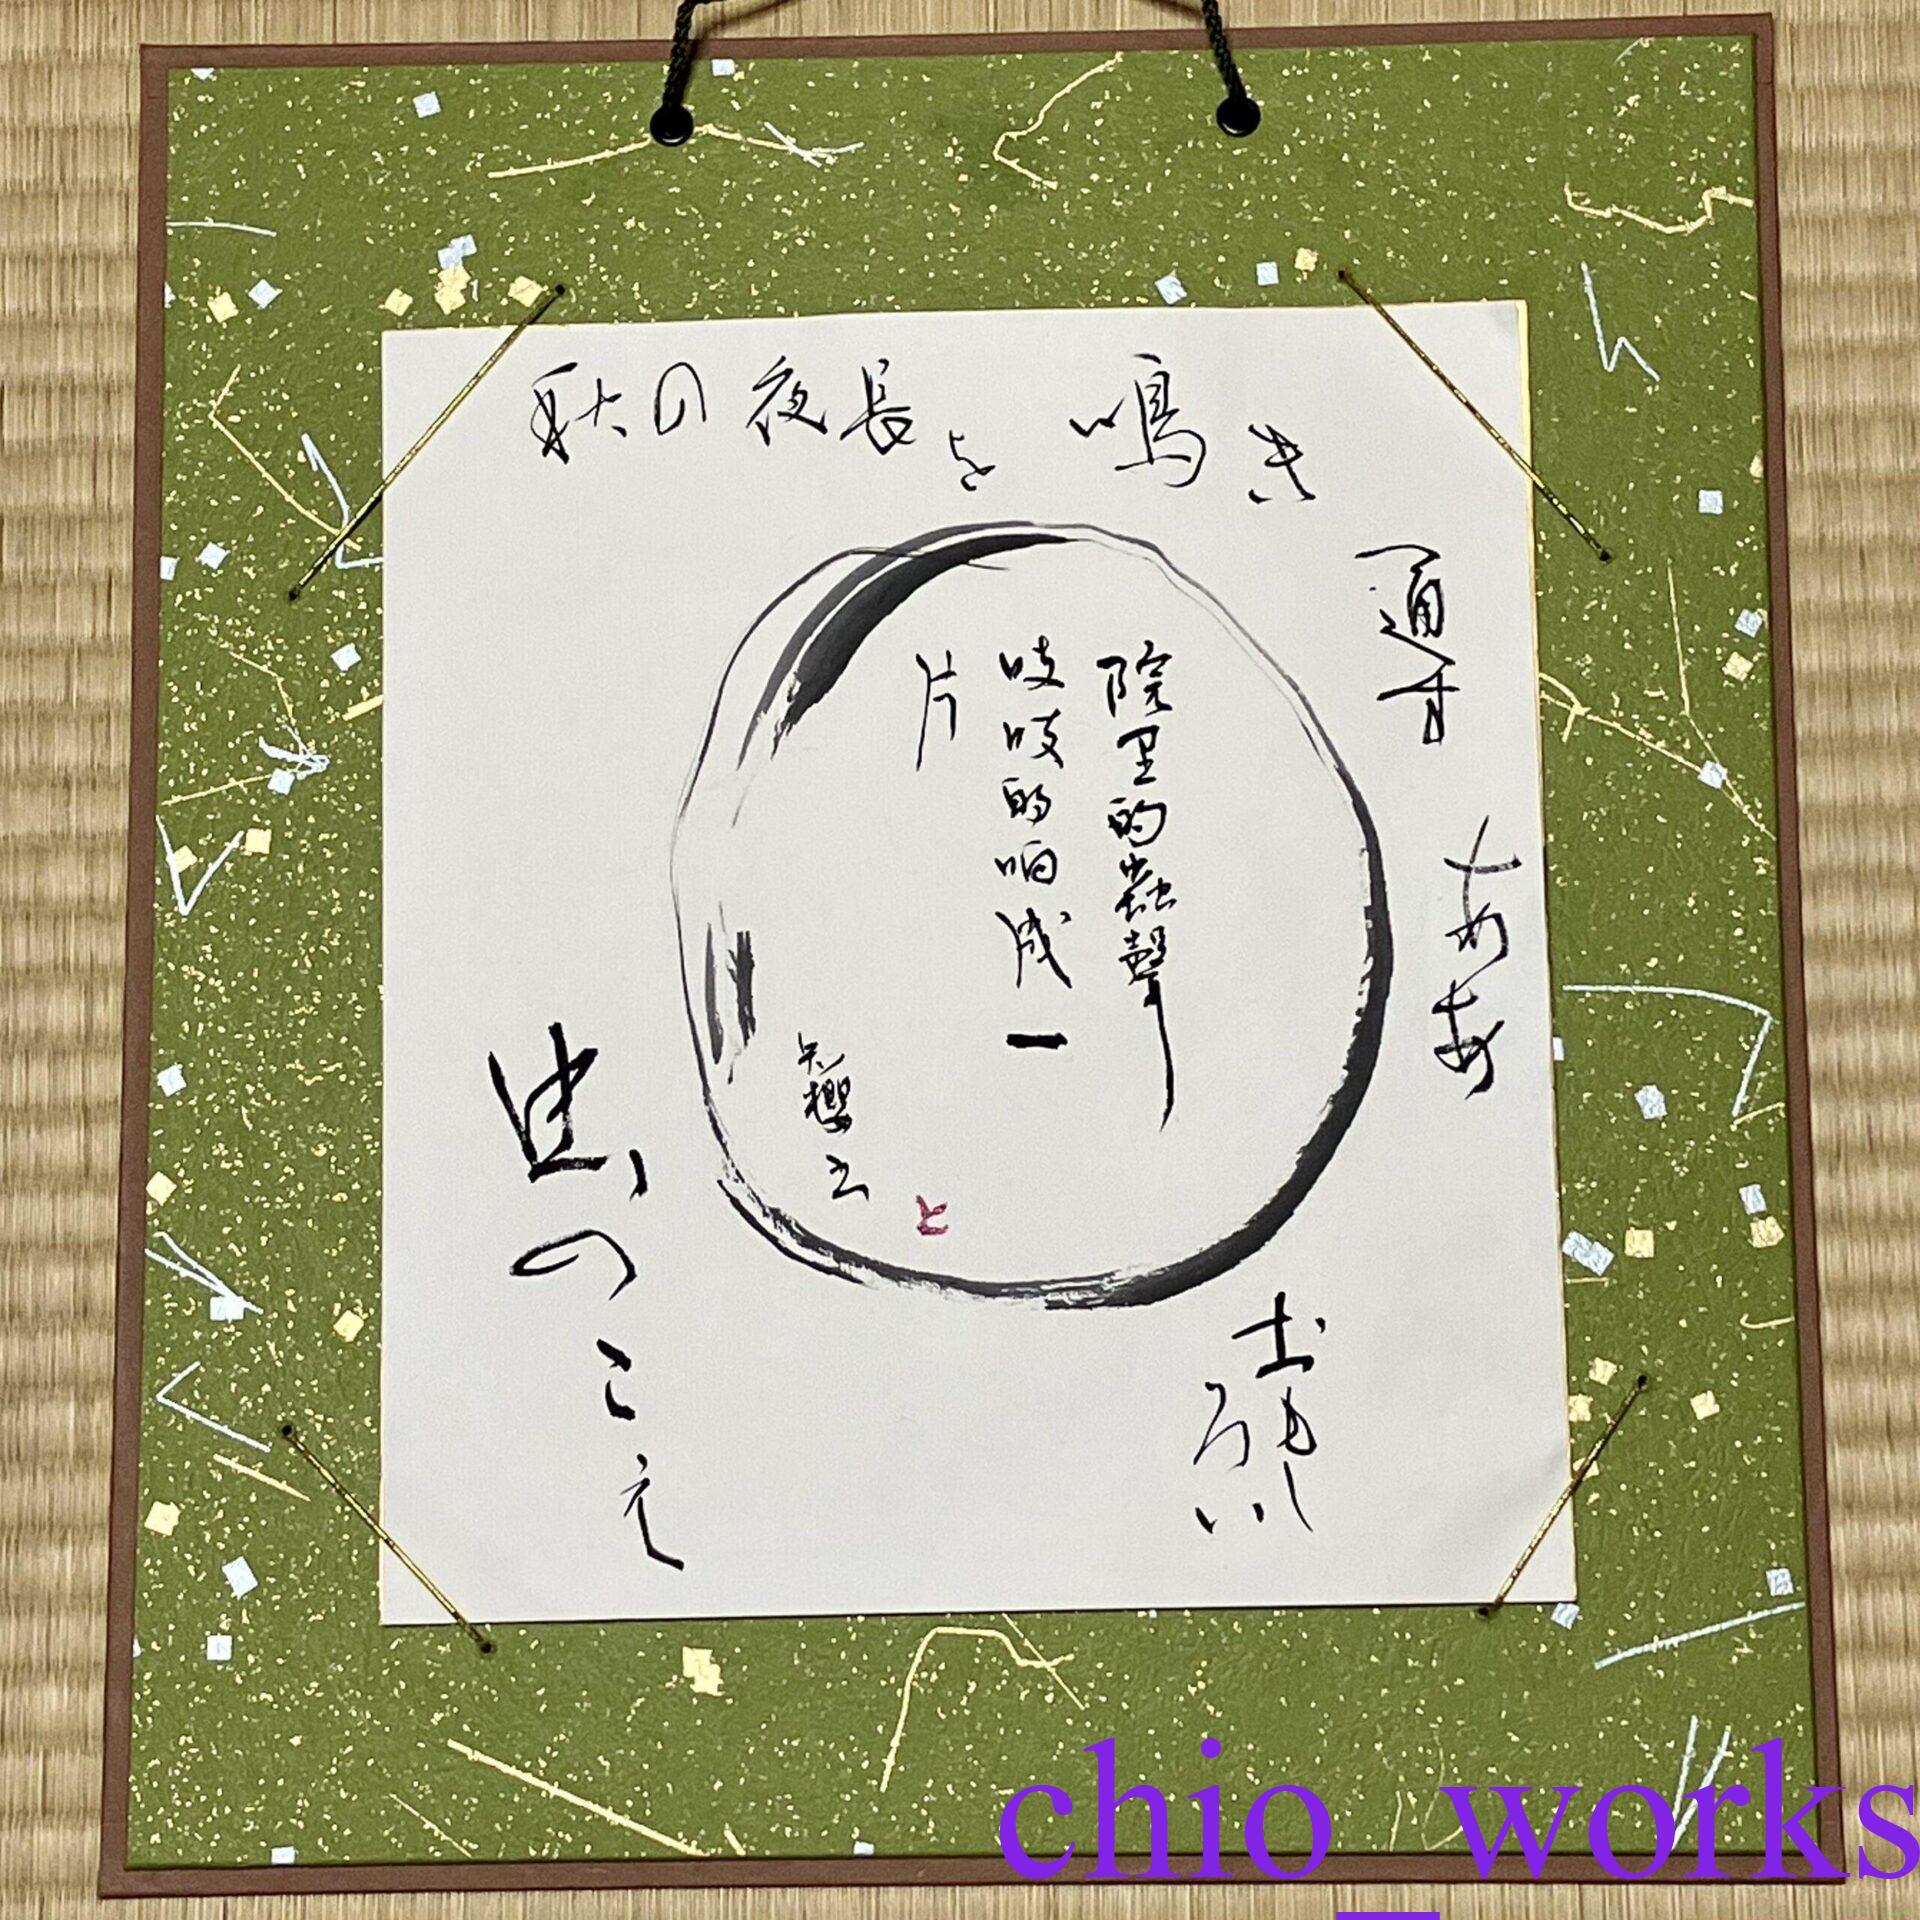 秋の夜長を鳴き
通す
ああ
おもしろい
虫のこえ
院里的蟲聲
吱吱的响成一
片
chio_works